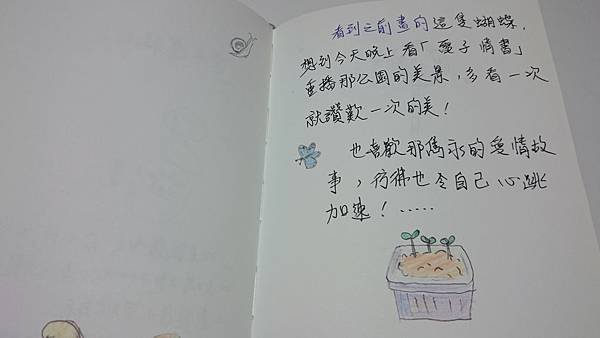 看到之前畫的這隻蝴蝶,
想到今天晚上看「孽子情書」
重播那公園的美景,多看一次
就讚歎一次的美!
也喜歡那雋永的愛情故
事,彷彿也令自己心跳
加速!.....